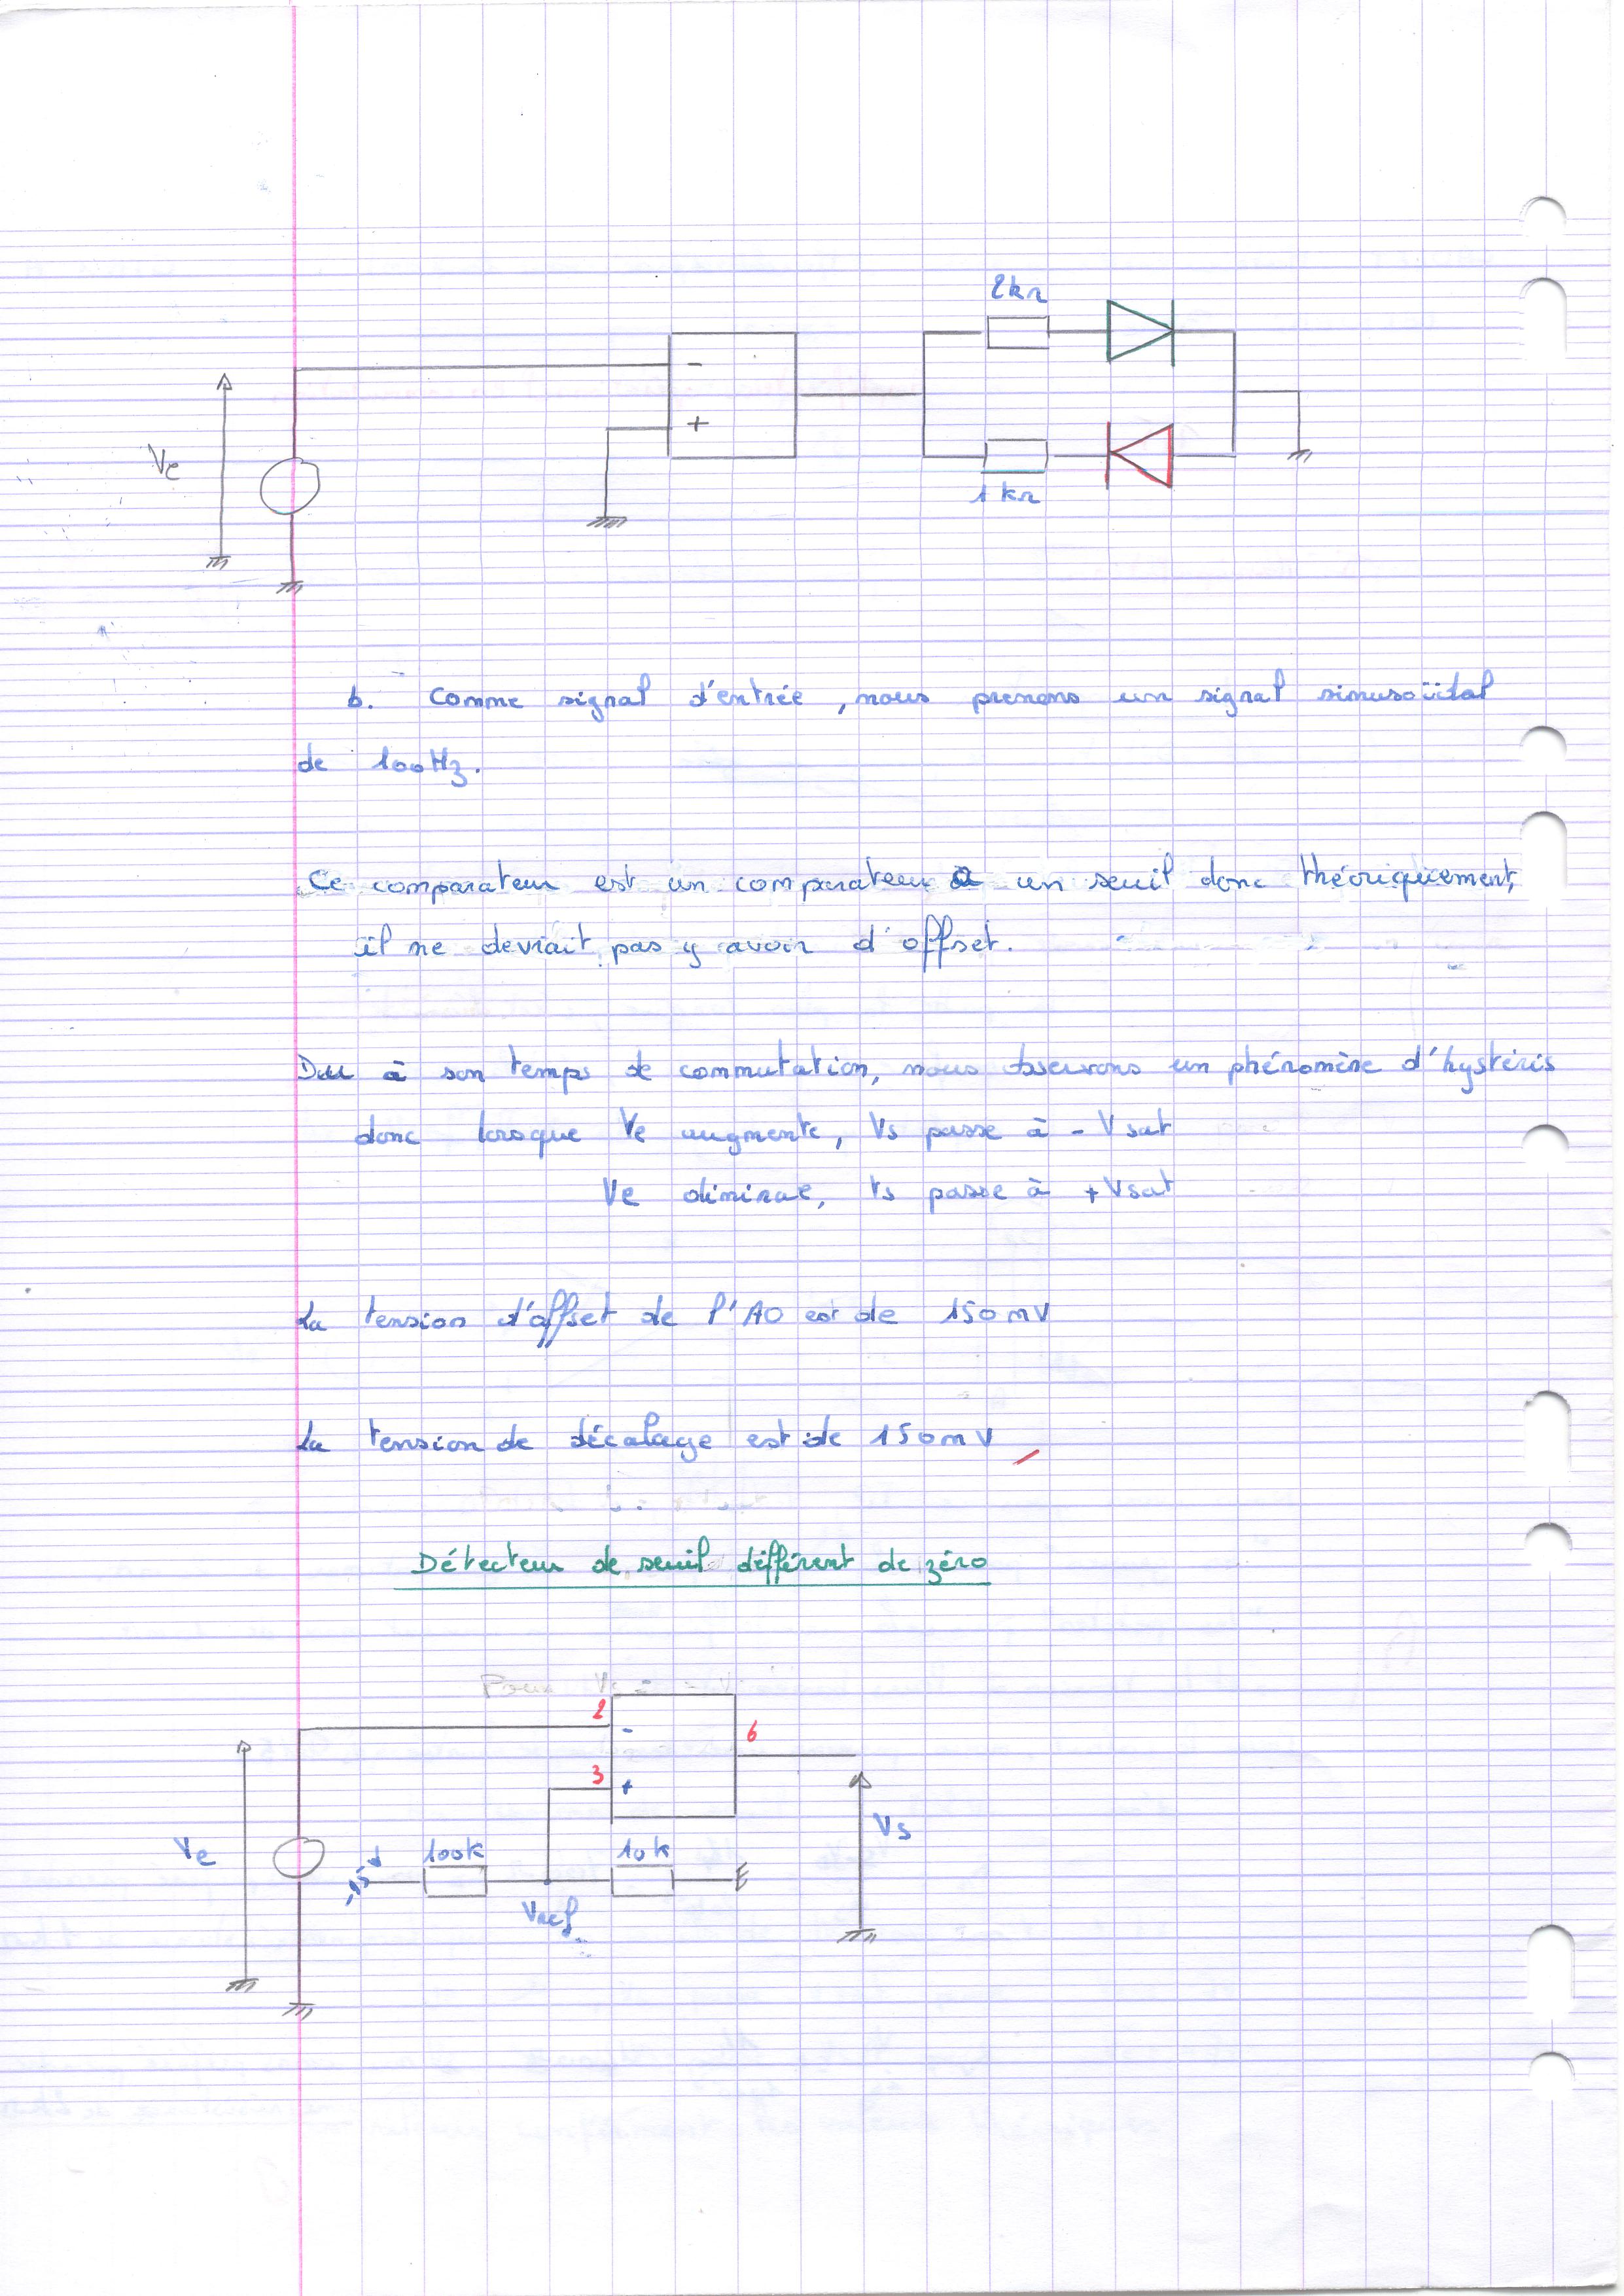 2kΩ
-
+
Ve
1kΩ
b. Comme signal d'entrée, nous prenons un signal sinusoïdal
de 100Hz.
Ce comparateur est un comparateur à un seuil donc théoriquement,
il ne devrait pas y avoir d'offset.
Du à son temps de commutation, nous observons un phénomène d'hystéris
donc lorsque Ve augmente, Vs passe à -Vsat
Ve diminue, Vs passe à +Vsat
La tension d'offset de l'AO est de 150mV
La tension de décalage est de 150mV
Détecteur de seuil différent de zéro
Pour Vs = -V
2
-
6
3
+
Vs
Ve
100k
10k
-15V
Vref